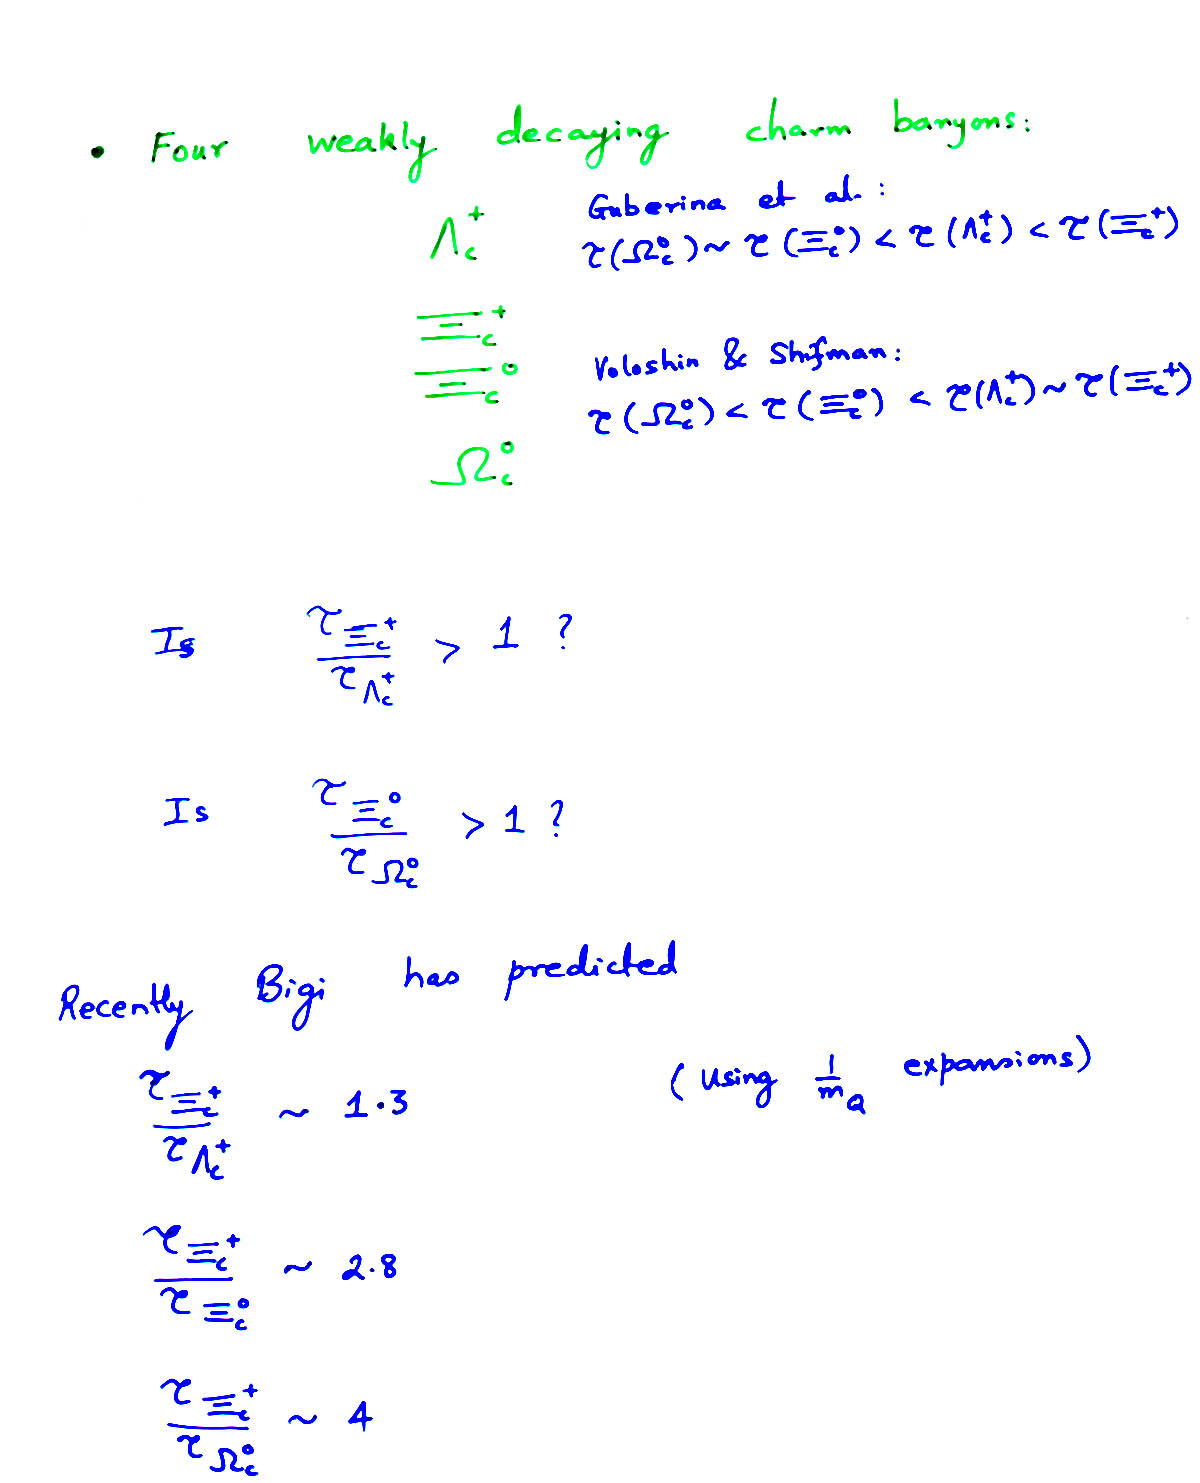 • Four weakly decaying charm baryons:
Λc⁺
Guberina et al.:
τ(Ωc⁰) ~ τ(Ξc⁰) < τ(Λc⁺) < τ(Ξc⁺)
Ξc⁺
Voloshin & Shifman:
Ξc⁰
τ(Ωc⁰) < τ(Ξc⁰) < τ(Λc⁺) ~ τ(Ξc⁺)
Ωc⁰
Is τΞc⁺ / τΛc⁺ > 1 ?
Is τΞc⁰ / τΩc⁰ > 1 ?
Recently Bigi has predicted
(Using 1/mQ expansions)
τΞc⁺ / τΛc⁺ ~ 1.3
τΞc⁺ / τΞc⁰ ~ 2.8
τΞc⁺ / τΩc⁰ ~ 4